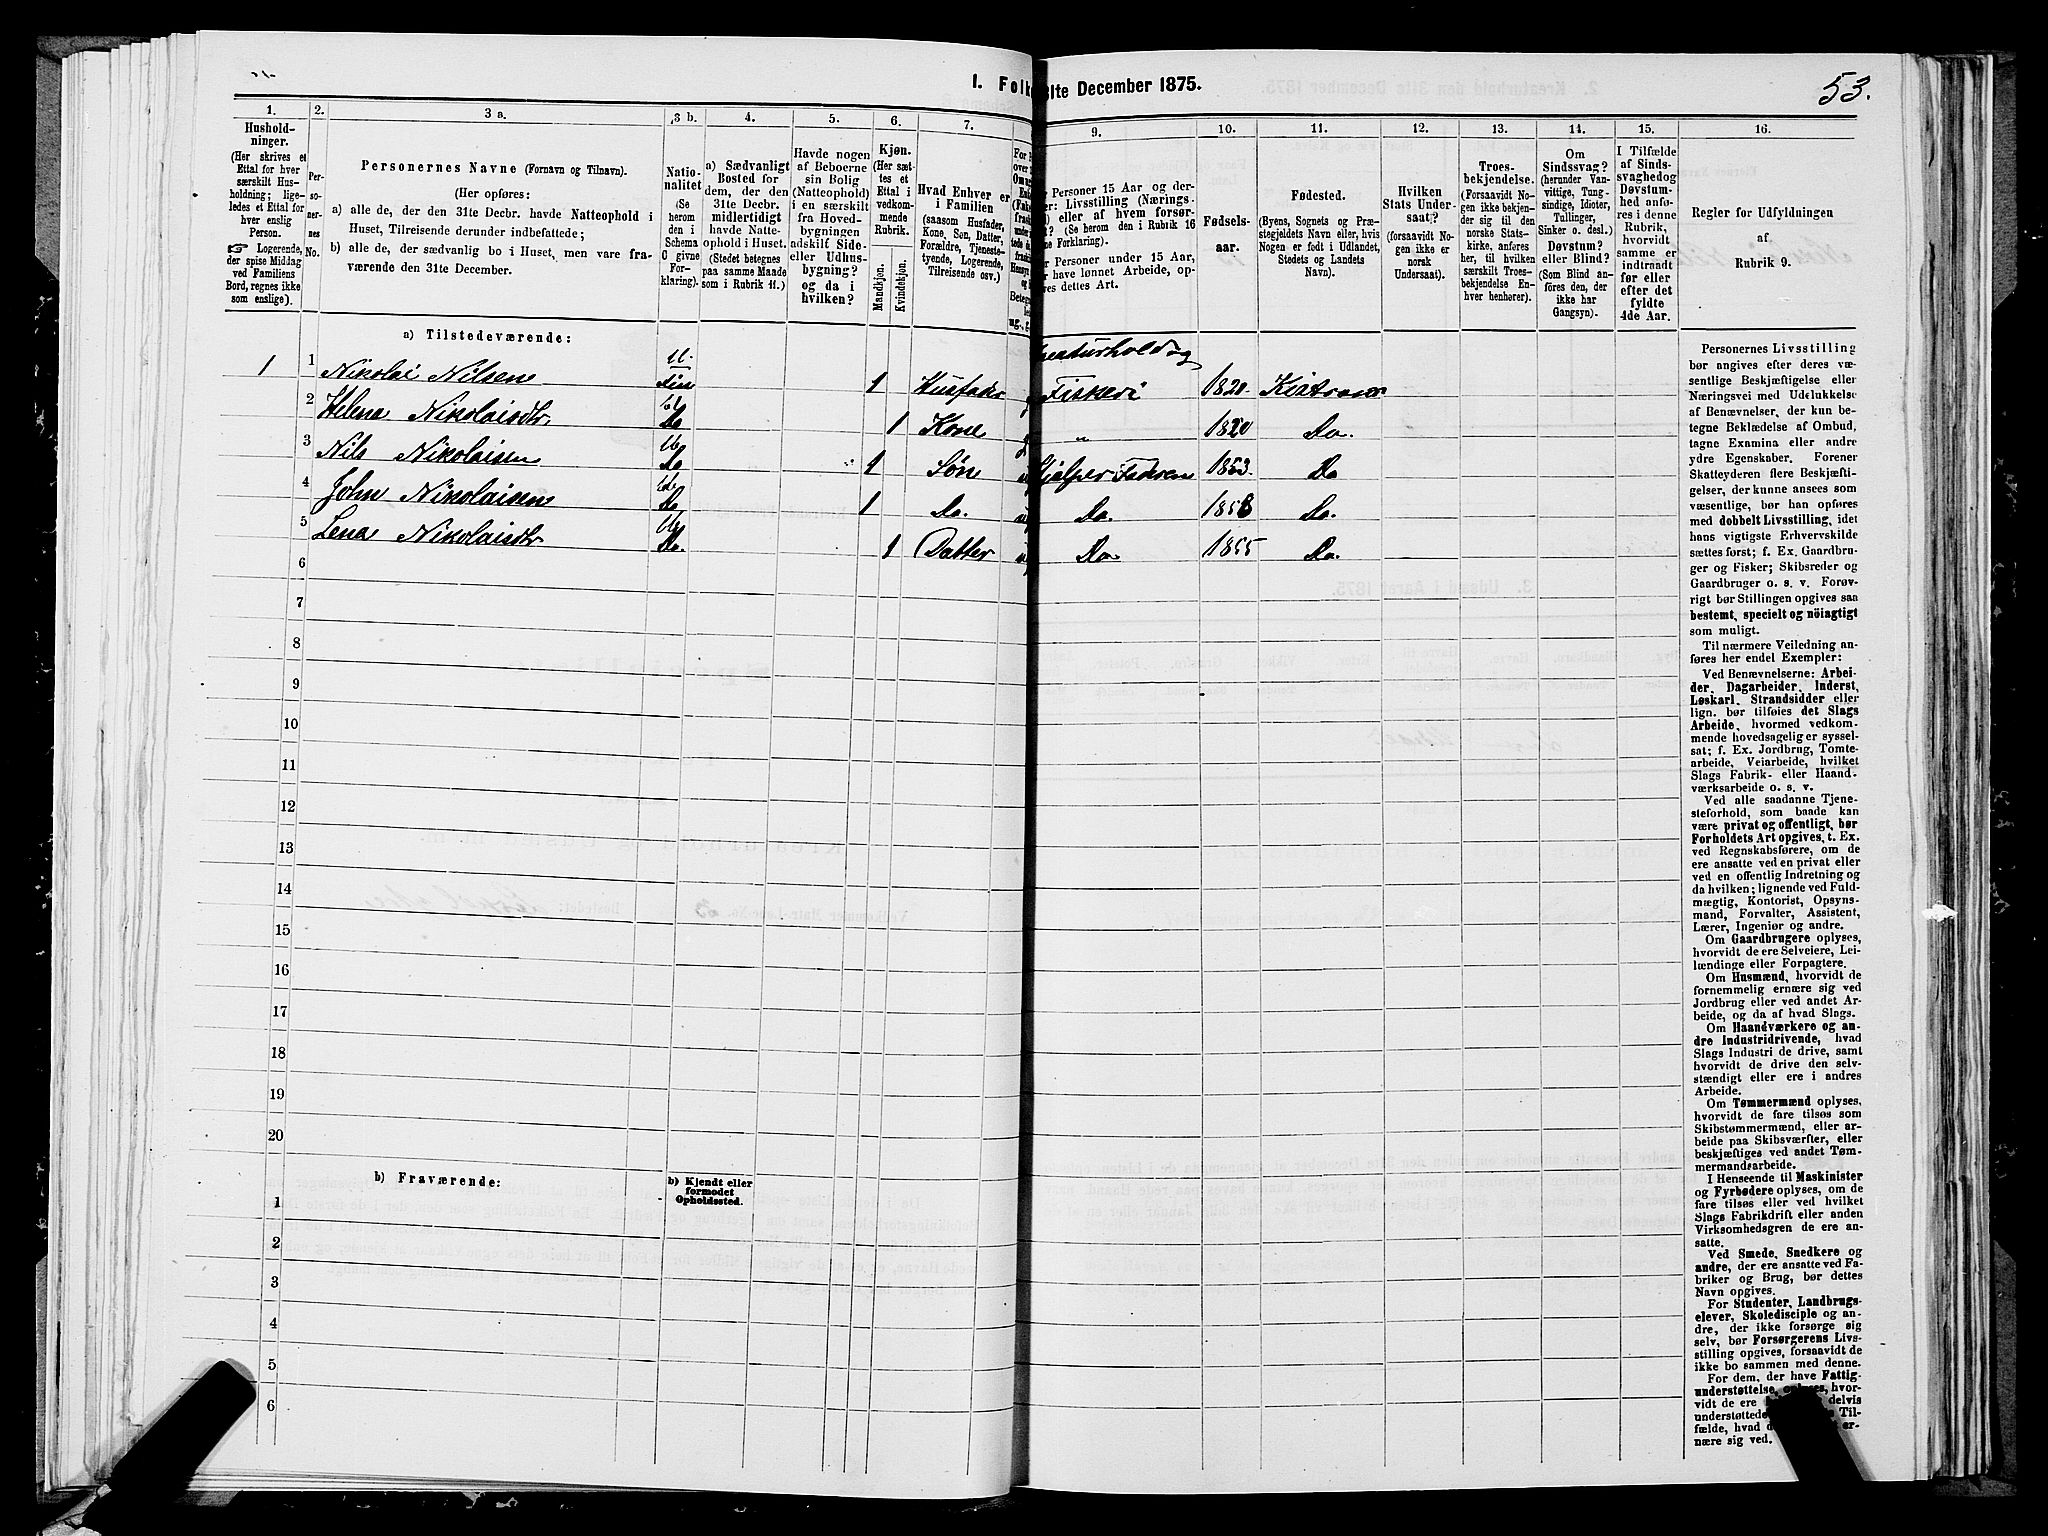 I. Folk
31te December 1875.
53.
1.
2.
3 a.
3 b.
4.
5.
6.
7.
9.
10.
11.
12.
13.
14.
15.
16.
Hushold-
ninger.
(Her skrives et
Ettal for hver
særskilt Hus-
holdning; lige-
ledes et Ettal for
hver enslig
Person.
Logerende,
der spise Middag
ved Familiens
Bord, regnes ikke
som enslige).
Per-
so-
ner-
nes
No.
Personernes Navne (Fornavn og Tilnavn).
(Her opføres:
a) alle de, der den 31te Decbr. havde Natteophold i
Huset, Tilreisende derunder indbefattede;
b) alle de, der sædvanlig bo i Huset, men vare fra-
værende den 31te December.
Natio-
nalitet
(Se
herom
den i
Schema
C givne
For-
klaring).
a) Sædvanligt
Bosted for
dem, der den
31te Decbr.
midlertidigt
havde Natte-
ophold i Huset.
(Stedet betegnes
paa samme Maade
som i Rubrik 11.)
Havde nogen
af Beboerne
sin Bolig
(Natteophold)
i en særskilt
fra Hoved-
bygningen
adskilt Side-
eller Udhus-
bygning?
og da i
hvilken?
Kjøn.
(Her sæt-
tes et
Ettal i
vedkom-
mende
Rubrik.
Mandkjøn.
Kvindekjøn.
Hvad Enhver er
i Familien
(saasom Husfader,
Kone, Søn, Datter,
Forældre, Tjeneste-
tyende, Logerende,
Tilreisende osv.)
Personer 15 Aar og der-
Livsstilling (Nærings-
eller af hvem forsør-
(Se herom den i Rubrik 16
Forklaring).
Personer under 15 Aar,
have lønnet Arbeide, op-
dettes Art.
Fødsels-
aar.
Fødested.
(Byens, Sognets og Præ-
stegjeldets Navn eller, hvis
Nogen er født i Udlandet,
Stedets og Landets
Navn).
Hvilken
Stats Under-
saat?
(forsaavidt No-
gen ikke er
norsk
Undersaat).
Troes-
bekjendelse.
(Forsaavidt No-
gen ikke bekjen-
der sig til den
norske Stats-
kirke, anføres
her, til hvilken
særskilt Troes-
bekjendelse En-
hver henhører).
Om
Sindssvag?
(herunder Van-
vittige, Tung-
sindige, Idioter,
Tullinger,
Sinker o. desl.)
Døvstum?
eller Blind?
(Som Blind an-
føres den, der
ikke har
Gangsyn).
I Tilfælde
af Sinds-
svaghed og
Døvstum-
hed anfø-
res i denne
Rubrik,
hvorvidt
samme er
indtraadt
før eller
efter det
fyldte
4de Aar.
Regler for Udfyldningen
af
Rubrik 9.
a) Tilstedeværende:
1 1 Nikolai Nilsen Fin 1 Husfader Fiskeri 1820. Kistrand
2 Helena Nikolaisdtr. Do 1 Kone „ 1820 Do.
3 Nils Nikolaisen Do 1 Søn Hjælper Faderen 1853. Do
4 John Nikolaisen Do 1 Do. Do. 1858 Do.
5 Lena Nikolaisdtr Do. 1 Datter Do 1855 Do.
6
7
8
9
10
11
12
13
14
15
16
17
18
19
20
b) Fraværende:
b) Kjendt eller
formodet
Opholdssted.
1
2
3
4
5
6
Personernes Livsstilling
bør angives efter deres væ-
sentlige Beskjæftigelse eller
Næringsvei med Udelukkelse
af Benævnelser, der kun be-
tegne Beklædelse af Ombud,
tagne Examina eller andre
ydre Egenskaber. Forener
Skatteyderen flere Beskjæfti-
gelser, der kunne ansees som
væsentlige, bør han opføres
med dobbelt Livsstilling, idet
hans vigtigste Erhvervskilde
sættes først; f. Ex. Gaardbru-
ger og Fisker; Skibsreder og
Gaardbruger o. s. v. Forøv-
rigt bør Stillingen opgives saa
bestemt, specielt og nöiagtigt
som muligt.
Til nærmere Veiledning an-
føres her endel Exempler:
Ved Benævnelserne: Arbei-
der, Dagarbeider, Inderst,
Løskarl, Strandsidder eller
lign. bør tilføies det Slags
Arbeide, hvormed vedkom-
mende hovedsagelig er syssel-
sat; f. Ex. Jordbrug, Tomte-
arbeide, Veiarbeide, hvilket
Slags Fabrik- eller Haand-
værksarbeide o. s. v.
Ved alle saadanne Tjene-
steforhold, som baade kan
være privat og offentligt, bør
Forholdets Art opgives, t. Ex.
ved Regnskabsførere, om de
ere ansatte ved en privat eller
ved en offentlig Indretning og
da hvilken; lignende ved Fuld-
mægtig, Kontorist, Opsyns-
mand, Forvalter, Assistent,
Lærer, Ingeniør og andre.
Om Gaardbrugere oplyses,
hvorvidt de ere Selveiere, Lei-
lændinge eller Forpagtere.
Om Husmænd, hvorvidt de
fornemmelig ernære sig ved
Jordbrug eller ved andet Ar-
beide, og da af hvad Slags.
Om Haandværkere og an-
dre Industridrivende, hvad
Slags Industri de drive, samt
hvorvidt de drive den selv-
stændigt eller ere i andres
Arbeide.
Om Tømmermænd oplyses,
hvorvidt de fare tilsøs som
Skibstømmermænd, eller ar-
beide paa Skibsværfter, eller
beskjæftiges ved andet Tøm-
mermandsarbeide.
I Henseende til Maskinister
og Fyrbødere oplyses, om de
fare tilsøs eller ved hvilket
Slags Fabrikdrift eller anden
Virksomhedsgren de ere an-
satte.
Ved Smede, Snedkere og
andre, der ere ansatte ved Fa-
briker og Brug, bør dettes
Navn opgives.
For Studenter, Landbrugs-
elever, Skoledisciple og an-
dre, der ikke forsørge sig
selv, bør Forsørgerens Livs-
stilling opgives, forsaavidt de
ikke bo sammen med denne.
For dem, der have Fattig-
understøttelse, oplyses, hvor-
vidt de ere delvis
understøttede Til-
fælde, hvad er-
nære sig ved.